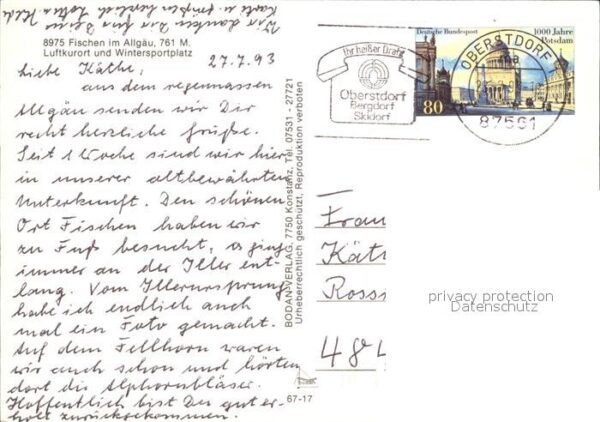 Wir danken Dir für Deine
Karte u. grüßen herzlich
8975 Fischen im Allgäu, 761 M.
Luftkurort und Wintersportplatz
27.7.93
Liebe Käthe,
aus dem regennassen
Allgäu senden wir Dir
recht herzliche Grüße.
Seit 1 Woche sind wir hier
in unserer altbewährten
Unterkunft. Den schönen
Ort Fischen haben wir
zu Fuß besucht, es ging
immer an der Iller ent-
lang. Vom Illerursprung
habe ich endlich auch
mal ein Foto gemacht.
Auf dem Fellhorn waren
wir auch schon und hörten
dort die Alphornbläser.
Hoffentlich bist Du gut er-
holt zurückgekommen.
BODAN-VERLAG, 7750 Konstanz, Tel. 07531 - 27721
Urheberrechtlich geschützt, Reproduktion verboten
67-17
Ihr heißer Draht
Oberstdorf
Bergdorf
Skidorf
Deutsche Bundespost
1000 Jahre
Potsdam
80
OBERSTDORF
87561
Frau
Kät
Ross
484
privacy protection
Datenschutz